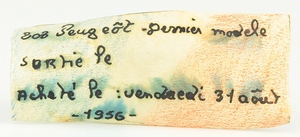 203 Peugeôt - Dernier modele
SORtiE le
Acheté le : vendredi 31 août
- 1956 -